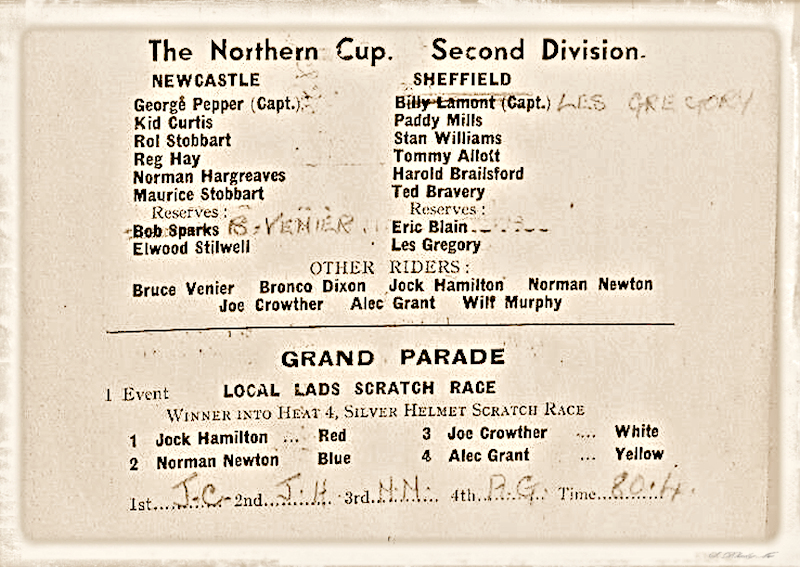 The Northern Cup. Second Division.
NEWCASTLE
George Pepper (Capt.)
Kid Curtis
Rol Stobbart
Reg Hay
Norman Hargreaves
Maurice Stobbart
Reserves:
Bob Sparks B. VENIER
Elwood Stilwell
SHEFFIELD
Billy Lamont (Capt.) LES GREGORY
Paddy Mills
Stan Williams
Tommy Allott
Harold Brailsford
Ted Bravery
Reserves:
Eric Blain
Les Gregory
OTHER RIDERS:
Bruce Venier Bronco Dixon Jock Hamilton Norman Newton
Joe Crowther Alec Grant Wilf Murphy
GRAND PARADE
1 Event LOCAL LADS SCRATCH RACE
WINNER INTO HEAT 4, SILVER HELMET SCRATCH RACE
1 Jock Hamilton ... Red
2 Norman Newton Blue
3 Joe Crowther ... White
4 Alec Grant ... Yellow
1st...J.C. 2nd...J.H. 3rd...N.N. 4th...A.G. Time...80.4.